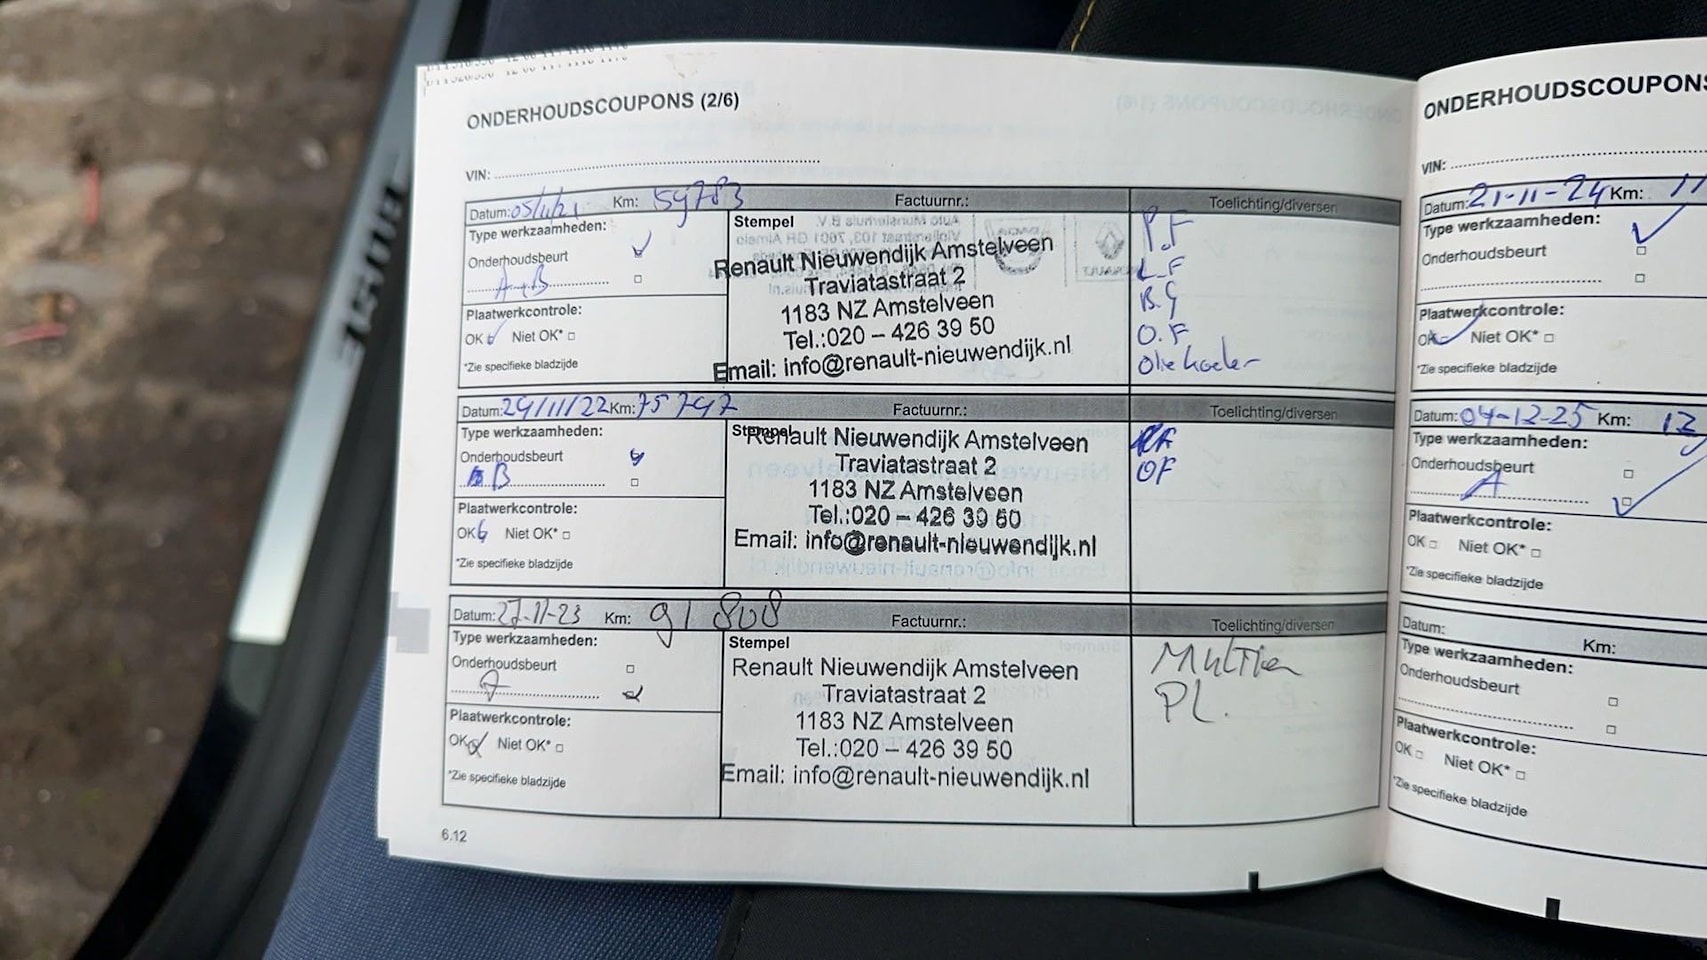 ONDERHOUDSCOUPONS (2/6)
VIN:
Datum: Km: 59783 Factuurnr.: Toelichting/diversen
Type werkzaamheden:
Onderhoudsbeurt
A+B
Plaatwerkcontrole:
OK Niet OK*
*Zie specifieke bladzijde
Stempel
Renault Nieuwendijk Amstelveen
Traviatastraat 2
1183 NZ Amstelveen
Tel.:020 – 426 39 50
Email: info@renault-nieuwendijk.nl
P.F
L.F
O.F
Oliekoeler
Datum: 29/11/22 Km: 75747 Factuurnr.: Toelichting/diversen
Type werkzaamheden:
Onderhoudsbeurt
B
Plaatwerkcontrole:
OK Niet OK*
*Zie specifieke bladzijde
Stempel
Renault Nieuwendijk Amstelveen
Traviatastraat 2
1183 NZ Amstelveen
Tel.:020 – 426 39 50
Email: info@renault-nieuwendijk.nl
OF
Datum: 27-11-23 Km: 91808 Factuurnr.: Toelichting/diversen
Type werkzaamheden:
Onderhoudsbeurt
Plaatwerkcontrole:
OK Niet OK*
*Zie specifieke bladzijde
Stempel
Renault Nieuwendijk Amstelveen
Traviatastraat 2
1183 NZ Amstelveen
Tel.:020 – 426 39 50
Email: info@renault-nieuwendijk.nl
PL.
6.12
ONDERHOUDSCOUPONS
VIN:
Datum: 21-11-24 Km: 11
Type werkzaamheden:
Onderhoudsbeurt
Plaatwerkcontrole:
OK Niet OK*
*Zie specifieke bladzijde
Datum: 04-12-25 Km: 12
Type werkzaamheden:
Onderhoudsbeurt
A
Plaatwerkcontrole:
OK Niet OK*
*Zie specifieke bladzijde
Datum: Km:
Type werkzaamheden:
Onderhoudsbeurt
Plaatwerkcontrole:
OK Niet OK*
*Zie specifieke bladzijde